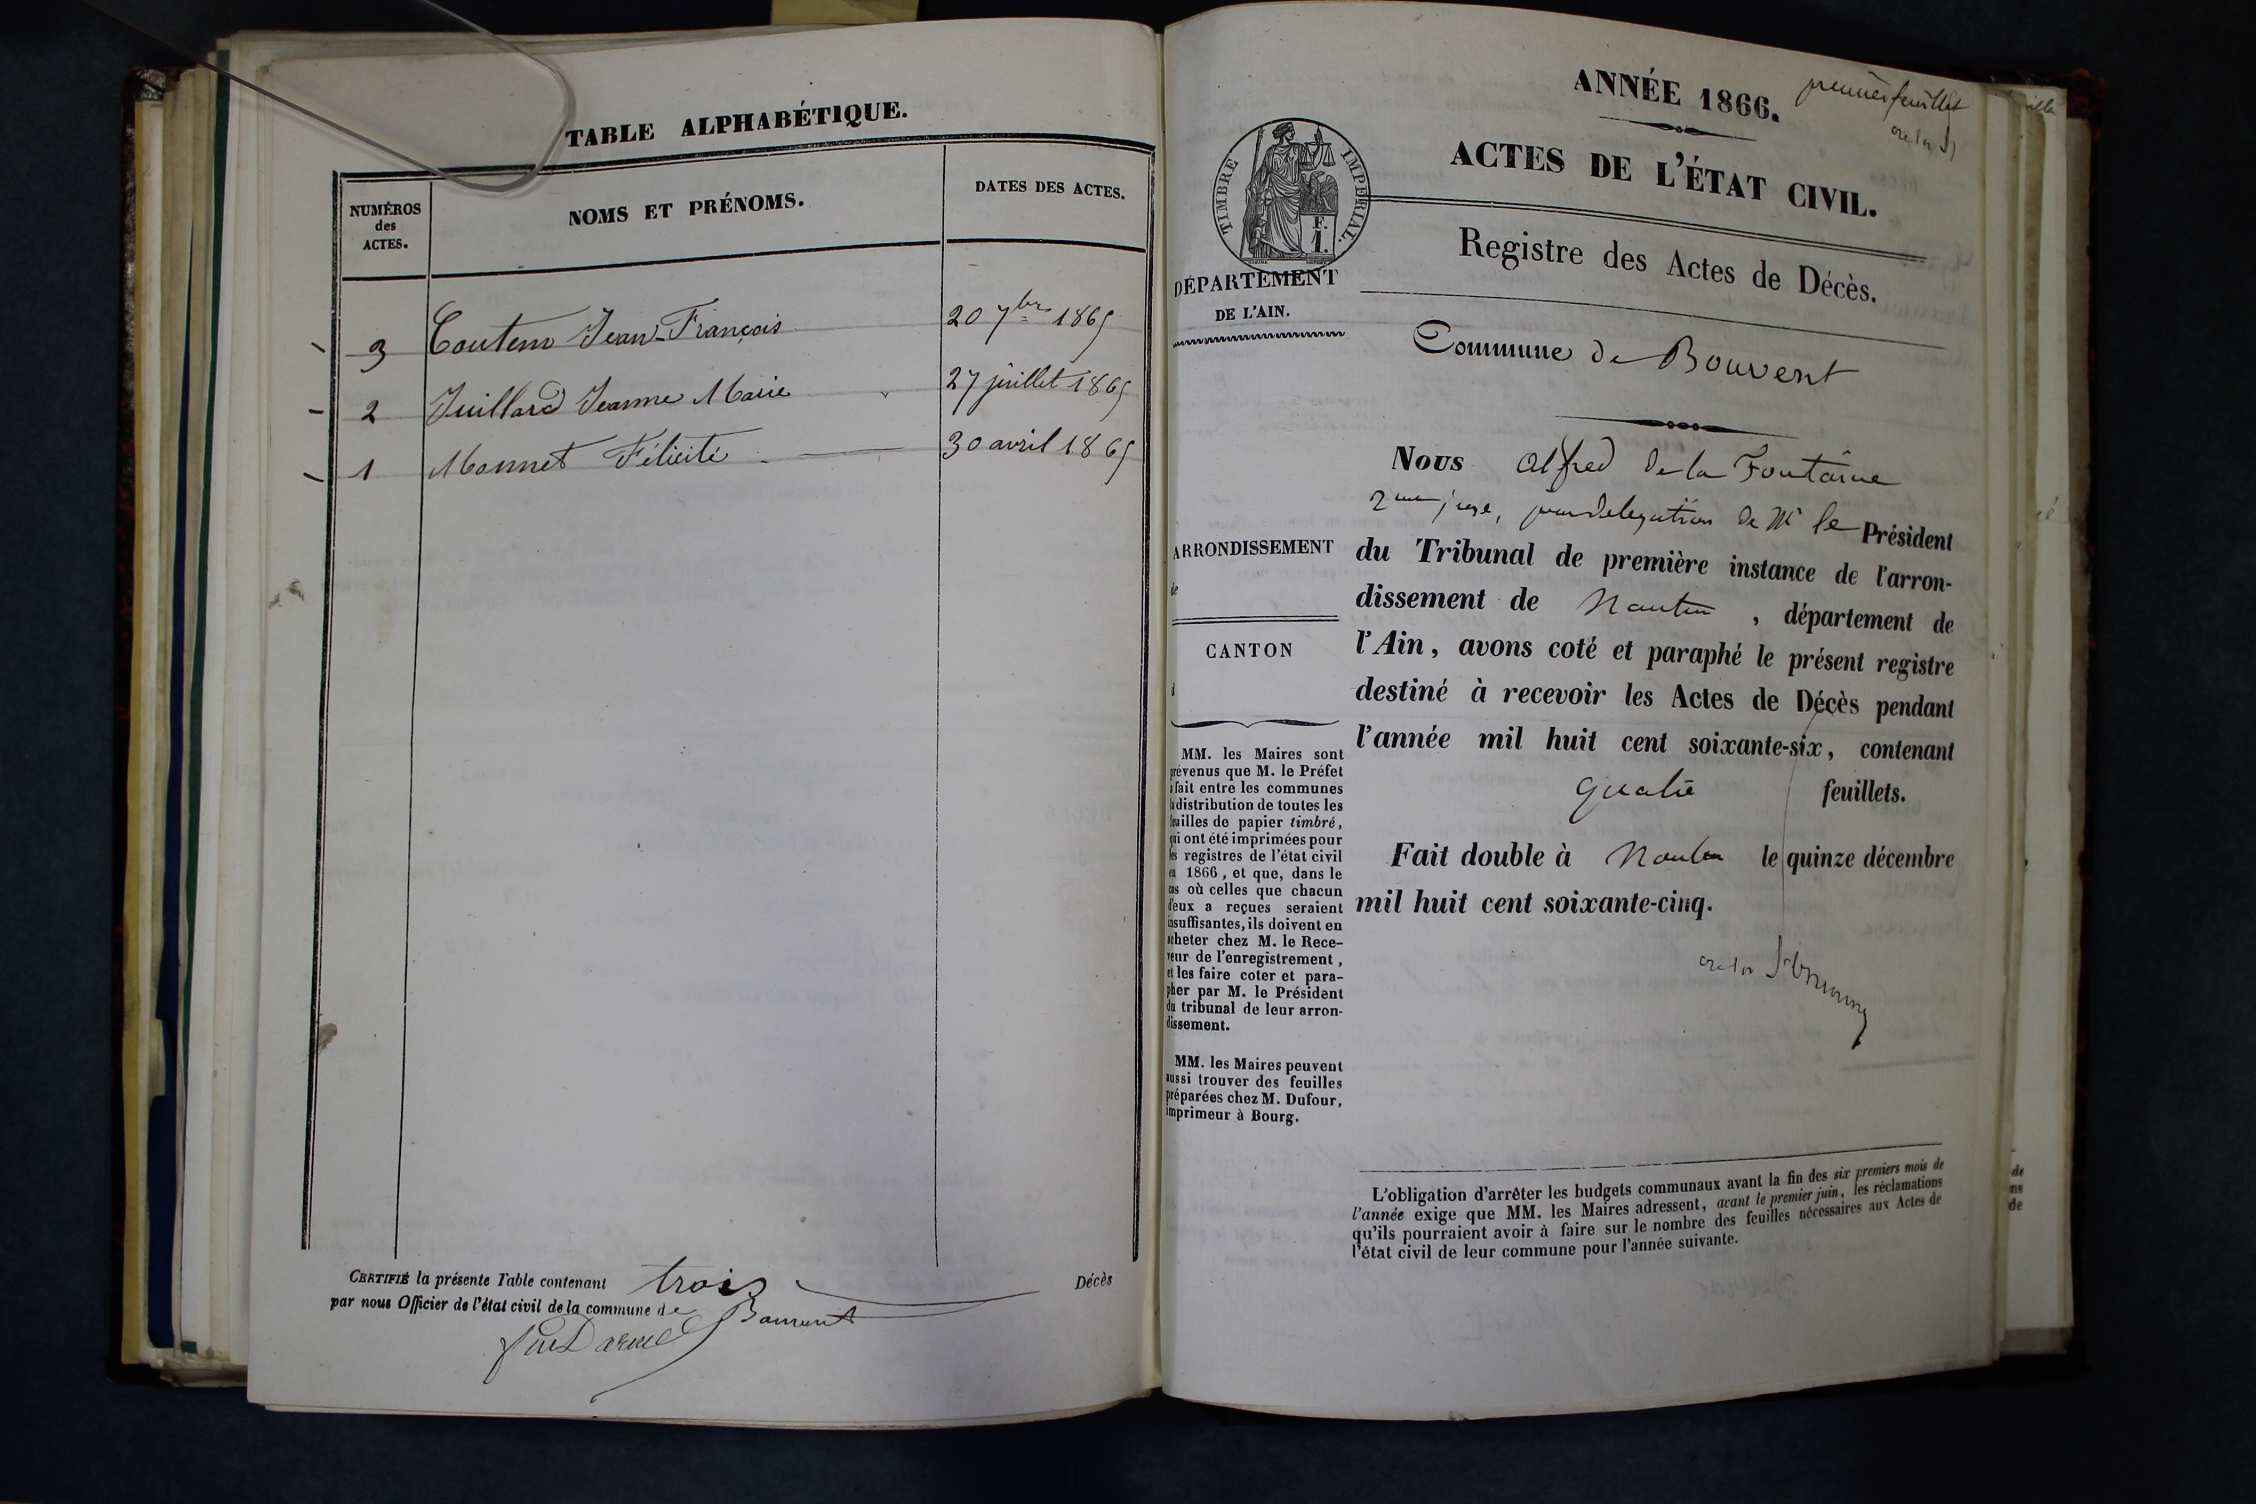 TABLE ALPHABÉTIQUE.
NUMÉROS
des
ACTES.
NOMS ET PRÉNOMS.
DATES DES ACTES.
3 Jean-François 20 7bre 1865
2 Juillard Jeanne Marie 27 juillet 1865
1 Monnet Félicité 30 avril 1865
CERTIFIÉ la présente Table contenant trois Décès
par nous Officier de l'état civil de la commune de Bouvent
première feuillet
ANNÉE 1866.
ACTES DE L'ÉTAT CIVIL.
TIMBRE IMPÉRIAL.
F.
1.
DÉPARTEMENT
DE L'AIN.
Registre des Actes de Décès.
Commune de Bouvent
ARRONDISSEMENT
de
CANTON
d
MM. les Maires sont
prévenus que M. le Préfet
a fait entre les communes
la distribution de toutes les
feuilles de papier timbré,
qui ont été imprimées pour
les registres de l'état civil
en 1866, et que, dans le
cas où celles que chacun
d'eux a reçues seraient
insuffisantes, ils doivent en
acheter chez M. le Rece-
veur de l'enregistrement,
et les faire coter et para-
pher par M. le Président
du tribunal de leur arron-
dissement.
MM. les Maires peuvent
aussi trouver des feuilles
préparées chez M. Dufour,
imprimeur à Bourg.
Nous Alfred de la Fontaine
2me juge, par delegation de Mr le Président
du Tribunal de première instance de l'arron-
dissement de Nantua, département de
l'Ain, avons coté et paraphé le présent registre
destiné à recevoir les Actes de Décès pendant
l'année mil huit cent soixante-six, contenant
quatre feuillets.
Fait double à Nantua le quinze décembre
mil huit cent soixante-cinq.
L'obligation d'arrêter les budgets communaux avant la fin des six premiers mois de
l'année exige que MM. les Maires adressent, avant le premier juin, les réclamations
qu'ils pourraient avoir à faire sur le nombre des feuilles nécessaires aux Actes de
l'état civil de leur commune pour l'année suivante.